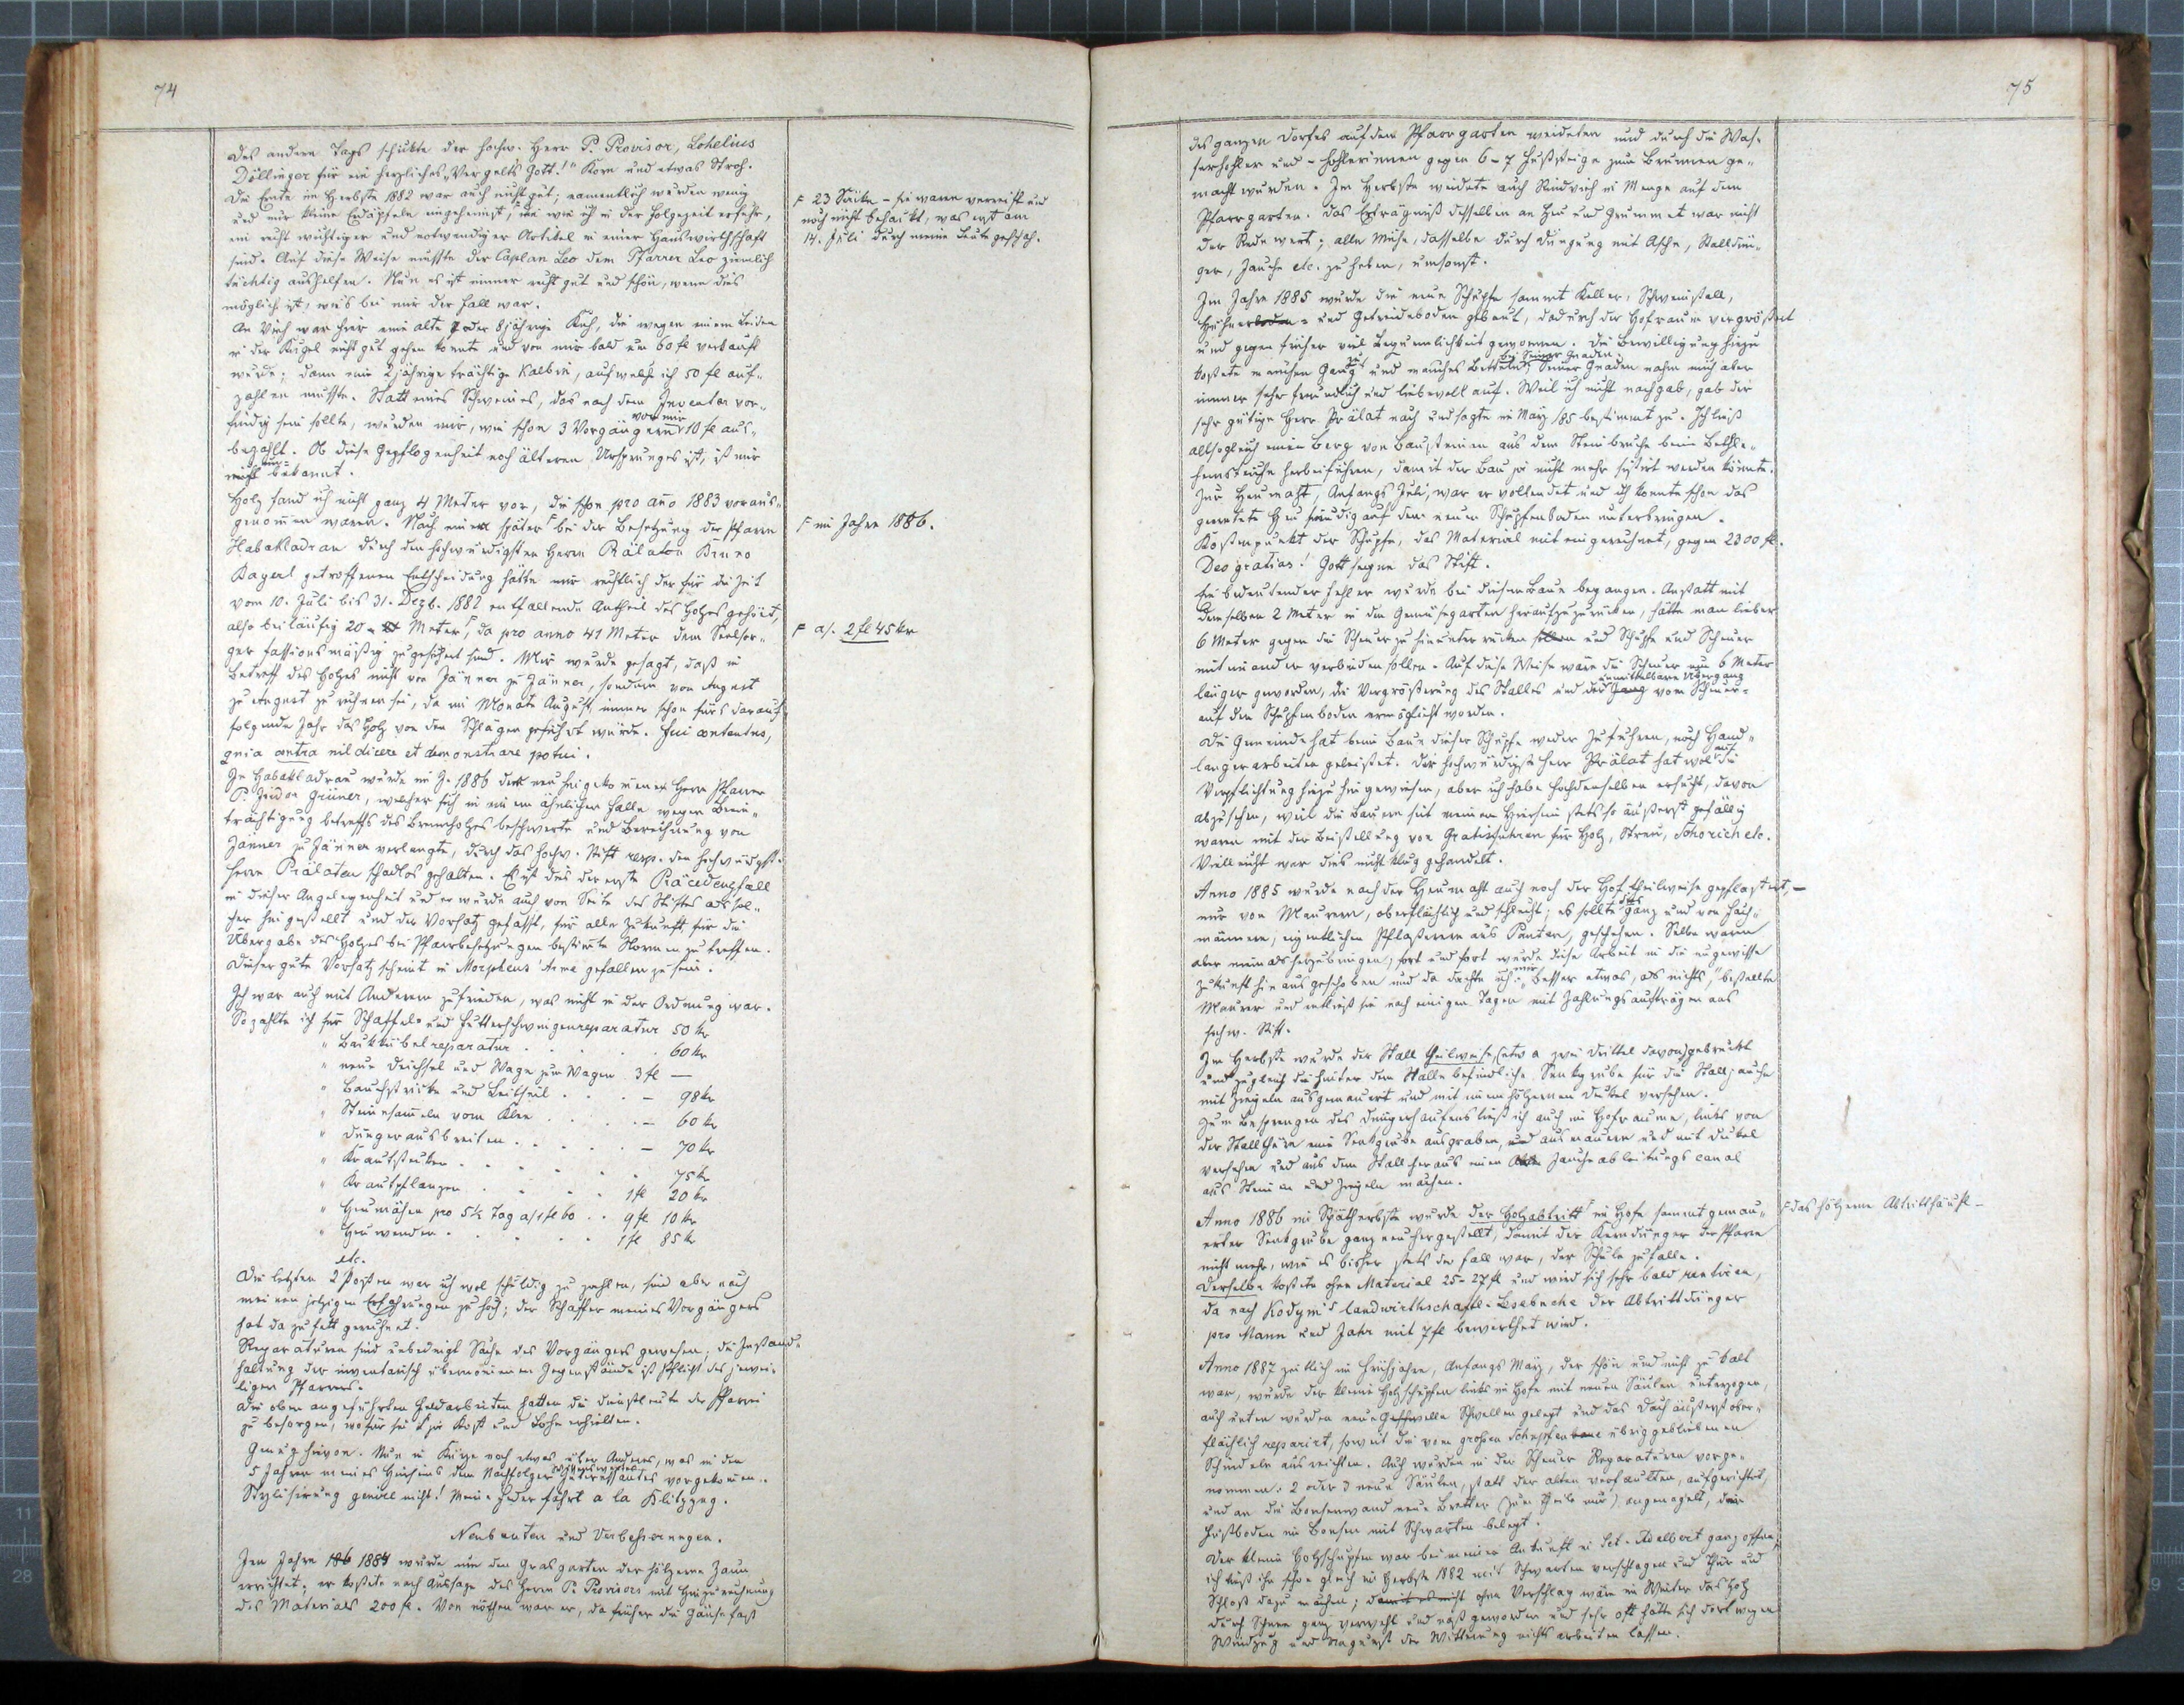 74
des andern Tags schickte der hochw. Herr P. Provisor, Lohelius
Döllinger für ein herzliches „Vergelts Gott!" Korn und etwas Stroh.
Die Ernte im Herbste 1882 war auch nicht gut; namentlich wurden wenig
und nur kleine Erdäpfeln eingeheimst, die wie ich in der Folgezeit erfuhr,
ein recht wichtiger und notwendiger Artikel in einer Hauswirthschaft
sind. Auf diese Weise musste der Caplan Leo dem Pfarrer Leo ziemlich
tüchtig aushelfen. Nun, es ist immer recht gut und schön, wenn dies
möglich ist, wie's bei mir der Fall war.
An Vieh war hier eine alte 7 oder 8jährige Kuh, die wegen einem Leiden
in der Kugel nicht gut gehen konnte und von mir bald um 60 fl verkauft
wurde; dann eine 2jährige trächtige Kalbin, auf welche ich 50 fl auf-
zahlen musste. Statt eines Schweines, das nach dem Inventar vor-
findig sein sollte, wurden mir, wie schon 3 Vorgängern vor mir 10 fl aus-
bezahlt. Ob diese Gepflogenheit noch älteren Ursprunges ist, ist mir
nicht bekannt.
Holz fand ich nicht ganz 4 Meter vor, die schon pro año 1883 voraus-
genommen waren. Nach einer später F bei der Besetzung der Pfarre
Habakladrau durch den hochwürdigsten Herrn Prälaten Bruno
Bayerl getroffenen Entscheidung hätte mir rechtlich der für die Zeit
vom 10. Juli bis 31. Dezb. 1882 entfallende Antheil des Holzes gehört,
also beiläufig 20 Meter F, da pro anno 41 Meter dem Seelsor-
ger fassionsmäßig zugesichert sind. Mir wurde gesagt, daß in
Betreff des Holzes nicht von Jänner zu Jänner, sondern von August
zu August zu rechnen sei, da im Monate August immer schon fürs darauf
folgende Jahr das Holz von den Schlägen geführt würde. Fui contentus,
quia contra nil dicere et demonstrare potui.
In Habakladrau wurde im J. 1886 der neu hingekommene Herr Pfarrer
P. Isidor Grüner, welcher sich in einem ähnlichen Falle wegen Beein-
trächtigung betreffs des Brennholzes beschwerte und Berechnung von
Jänner zu Jänner verlangte, durch das hochw. Stift resp. den hochwürdgst.
Herrn Prälaten schadlos gehalten. Es ist dies der erste Präcedenzfall
in dieser Angelegenheit und er wurde auch von Seite des Stiftes als sol-
cher hingestellt und der Vorsatz gefasst, für alle Zukunft für die
Übergabe des Holzes bei Pfarrbesetzungen bestimmte Normen zu treffen.
Dieser gute Vorsatz scheint in Morpheus' Arme gefallen zu sein.
Ich war auch mit Anderem zufrieden, was nicht in der Ordnung war.
So zahlte ich für Schaffel- und Futterschwingenreparatur 50 kr
" Backkübelreparatur . . . . 60 kr
" neue Deichsel und Wage zum Wagen 3 fl —
" Bauchstricke und Leitseil . . . — 98 kr
" Steinesammeln vom Klee . . . — 60 kr
" Düngerausbreiten . . . . — 70 kr
" Krautstecken . . . . . 75 kr
" Krautpflanzen . . . . 1 fl 20 kr
" Heumähen pro 5½ Tag a/ 1 fl 60 . . 9 fl 10 kr
" Heuwenden . . . . 1 fl 85 kr
etc.
Die letzten 2 Posten war ich wol schuldig zu zahlen, sind aber nach
meinen jetzigen Erfahrungen zu hoch; der Schaffer meines Vorgängers
hat da zu fett gerechnet.
Reparaturen sind unbedingt Sache des Vorgängers gewesen; die Instand-
haltung der inventarisch übernommenen Gegenstände ist Pflicht des jewei-
ligen Pfarrers.
Die oben angeführten Feldarbeiten hatten die Dienstleute der Pfarrei
zu besorgen, wofür sie ja Kost und Lohn erhielten.
Genug hievon. Nun in Kürze noch etwas über Anderes, was in den
5 Jahren meines Hierseins dem Nachfolger Interessantes vorgekommen.
Stylisirung genire nicht! Meine Feder fährt a la Blitzzug.
Neubauten und Verbesserungen.
Im Jahre 1884 wurde um den Grasgarten der hölzerne Zaun
errichtet; er kostete nach Aussage des Herrn P. Provisors mit Hinzurechnung
des Materials 200 fl. Von nöthen war er, da früher die Gänse fast
F 23 Säcke – sie waren verreift und
noch nicht behackt, was erst am
14. Juli durch meine Leute geschah.
F im Jahre 1886.
F a/. 2 fl 45 kr
75
des ganzen Dorfes auf dem Pfarrgarten weideten und durch die Was-
serholer und -holerinnen gegen 6–7 Fußsteige zum Brunnen ge-
macht wurden. Im Herbste weidete auch Rindvieh in Menge auf dem
Pfarrgarten. Das Erträgniß desselben an Heu und Grummet war nicht
der Rede wert; alle Mühe, dasselbe durch Düngung mit Asche, Stalldün-
ger, Jauche etc. zu heben, umsonst.
Im Jahre 1885 wurde die neue Schupfe sammt Keller, Schweinstall,
Hühner- und Getreideboden gebaut, dadurch der Hofraum vergrößert
und gegen früher viel Bequemlichkeit gewonnen. Die Bewilligung hiezu
kostete manchen Gang zu und manches Betteln bei Seiner Gnaden. Seine Gnaden nahm mich aber
immer sehr freundlich und liebevoll auf. Weil ich nicht nachgab, gab der
sehr gütige Herr Prälat nach und sagte im May 85 bestimmt zu. Ich ließ
allsogleich einen Berg von Bausteinen aus dem Steinbruche beim Bethle-
hemsteiche herbeiführen, damit der Bau ja nicht mehr sistirt werden könnte.
Zur Heumaht, Anfangs Juli, war er vollendet und ich konnte schon das
geerntete Heu freudig auf dem neuen Schupfenboden unterbringen.
Kostenpunkt der Schupfe, das Material mit eingerechnet, gegen 2300 fl.
Deo gratias! Gott segne das Stift.
Ein bedeutender Fehler wurde bei diesem Baue begangen. Anstatt mit
demselben 2 Meter in den Gemüsegarten heraufzurücken, hätte man lieber
6 Meter gegen die Scheuer zu hinunter rücken und Schupfe und Scheuer
mit einander verbinden sollen. Auf diese Weise wäre die Scheuer um 6 Meter
länger geworden, die Vergrößerung des Stalles und der unmittelbare Übergang vom Scheuer-
auf den Schupfenboden ermöglicht worden.
Die Gemeinde hat beim Baue dieser Schupfe weder Zufuhren, noch Hand-
langerarbeiten geleistet. Der hochwürdigste Herr Prälat hat wol auf die
Verpflichtung hiezu hingewiesen, aber ich habe Hochdenselben ersucht, davon
abzusehen, weil die Bauern seit meinem Hiersein stets so äußerst gefällig
waren mit der Beistellung von Gratisfuhren für Holz, Streu, Schorich etc.
Vielleicht war dies nicht klug gehandelt.
Anno 1885 wurde nach der Heumaht auch noch der Hof theilweise gepflastert, —
nur von Maurern, oberflächlich und schlecht; es sollte dies ganz und von Fach-
männern, eigentlichen Pflasterern aus Kuttau, geschehen. Selbe waren
aber niemals herzubringen; fort und fort wurde diese Arbeit in die ungewisse
Zukunft hinausgeschoben und da dachte ich mir: „Besser etwas, als nichts", bestellte
Maurer und entließ sie nach einigen Tagen mit Zahlungsaufträgen ans
hochw. Stift.
Im Herbste wurde der Stall theilweise, (etwa zwei Drittel davon) gebrückt
und zugleich die hinter dem Stalle befindliche Senkgrube für die Stalljauche
mit Ziegeln ausgemauert und mit einem hölzernen Deckel versehen.
Zum Besprengen des Düngerhaufens ließ ich auch im Hofraume, links von
der Stallthüre eine Senkgrube ausgraben, ausmauern und mit Deckel
versehen und aus dem Stall heraus einen Jaucheableitungscanal
aus Steinen und Ziegeln machen.
Anno 1886 im Spätherbste wurde der Holzabtritt F im Hofe sammt gemau-
erter Senkgrube ganz neu hergestellt, damit der Kerndünger der Pfarre
nicht mehr, wie es bisher stets der Fall war, der Schule zufalle.
Derselbe kostete ohne Material 25–27 fl und wird sich sehr bald rentiren,
da nach Kodym's landwirthschaftl. Lesebuche der Abtrittdünger
pro Mann und Jahr mit 7 fl bewerthet wird.
Anno 1887 zeitlich im Frühjahre, Anfangs May, der schön und nicht zu kalt
war, wurde der kleine Holzschupfen links im Hofe mit neuen Säulen unterzogen,
auch unten wurden neue Schwellen gelegt und das Dach äußerst ober-
flächlich reparirt, soweit die vom großen Schupfen übriggebliebenen
Schindeln ausreichten. Auch wurden in der Scheuer Reparaturen vorge-
nommen: 2 oder 3 neue Säulen, statt der alten verfaulten, aufgerichtet,
und an die Bansenwand neue Bretter (zum Theile nur), angenagelt, der
Fußboden im Bansen mit Schwarten belegt.
Der kleine Holzschupfen war bei meiner Ankunft in Sct. Adalbert ganz offen,
ich ließ ihn schon gleich im Herbste 1882 mit Schwarten verschlagen und Thür und
Schloß dazu machen; damit es nicht ohne Verschlag wäre im Winter das Holz
durch Schnee ganz verweht und naß geworden und sehr oft hätte sich dort wegen
Windzug und Ungunst der Witterung nichts arbeiten lassen.
F das hölzerne Abtritthäusl –